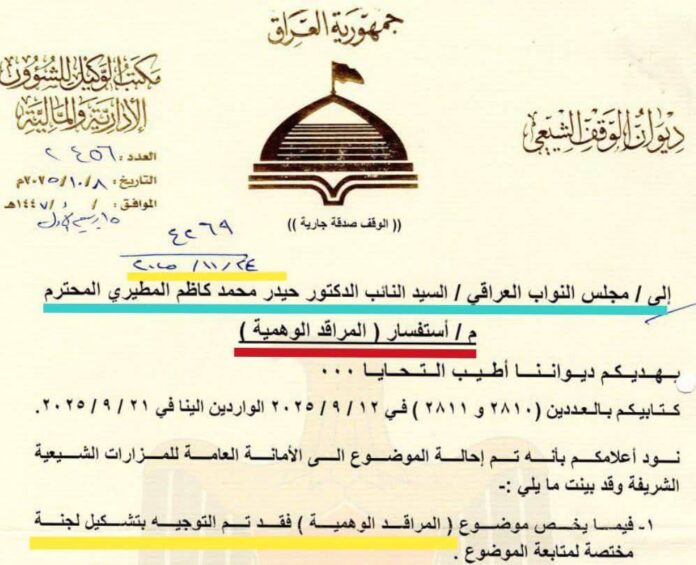 جمهورية العراق
ديوان الوقف الشيعي
مكتب الوكيل للشؤون
الادارية والمالية
العدد : ٢٤٥٦
التاريخ : ٢٠٢٥/١٠/٨م
الموافق : / / ١٤٤٧هـ
(( الوقف صدقة جارية ))
٤٢٦٩
٢٠٢٥/١١/٢٤
إلى / مجلس النواب العراقي / السيد النائب الدكتور حيدر محمد كاظم المطيري المحترم
م / أستفسار ( المراقد الوهمية )
يهديكم ديواننا أطيب التحايا ٠٠٠
كتابيكم بالعددين (٢٨١٠ و ٢٨١١ ) في ١٢ / ٩ / ٢٠٢٥ الواردين الينا في ٢١ / ٩ / ٢٠٢٥.
نود أعلامكم بأنه تم إحالة الموضوع الى الأمانة العامة للمزارات الشيعية
الشريفة وقد بينت ما يلي :-
١- فيما يخص موضوع ( المراقد الوهمية ) فقد تم التوجيه بتشكيل لجنة
مختصة لمتابعة الموضوع .